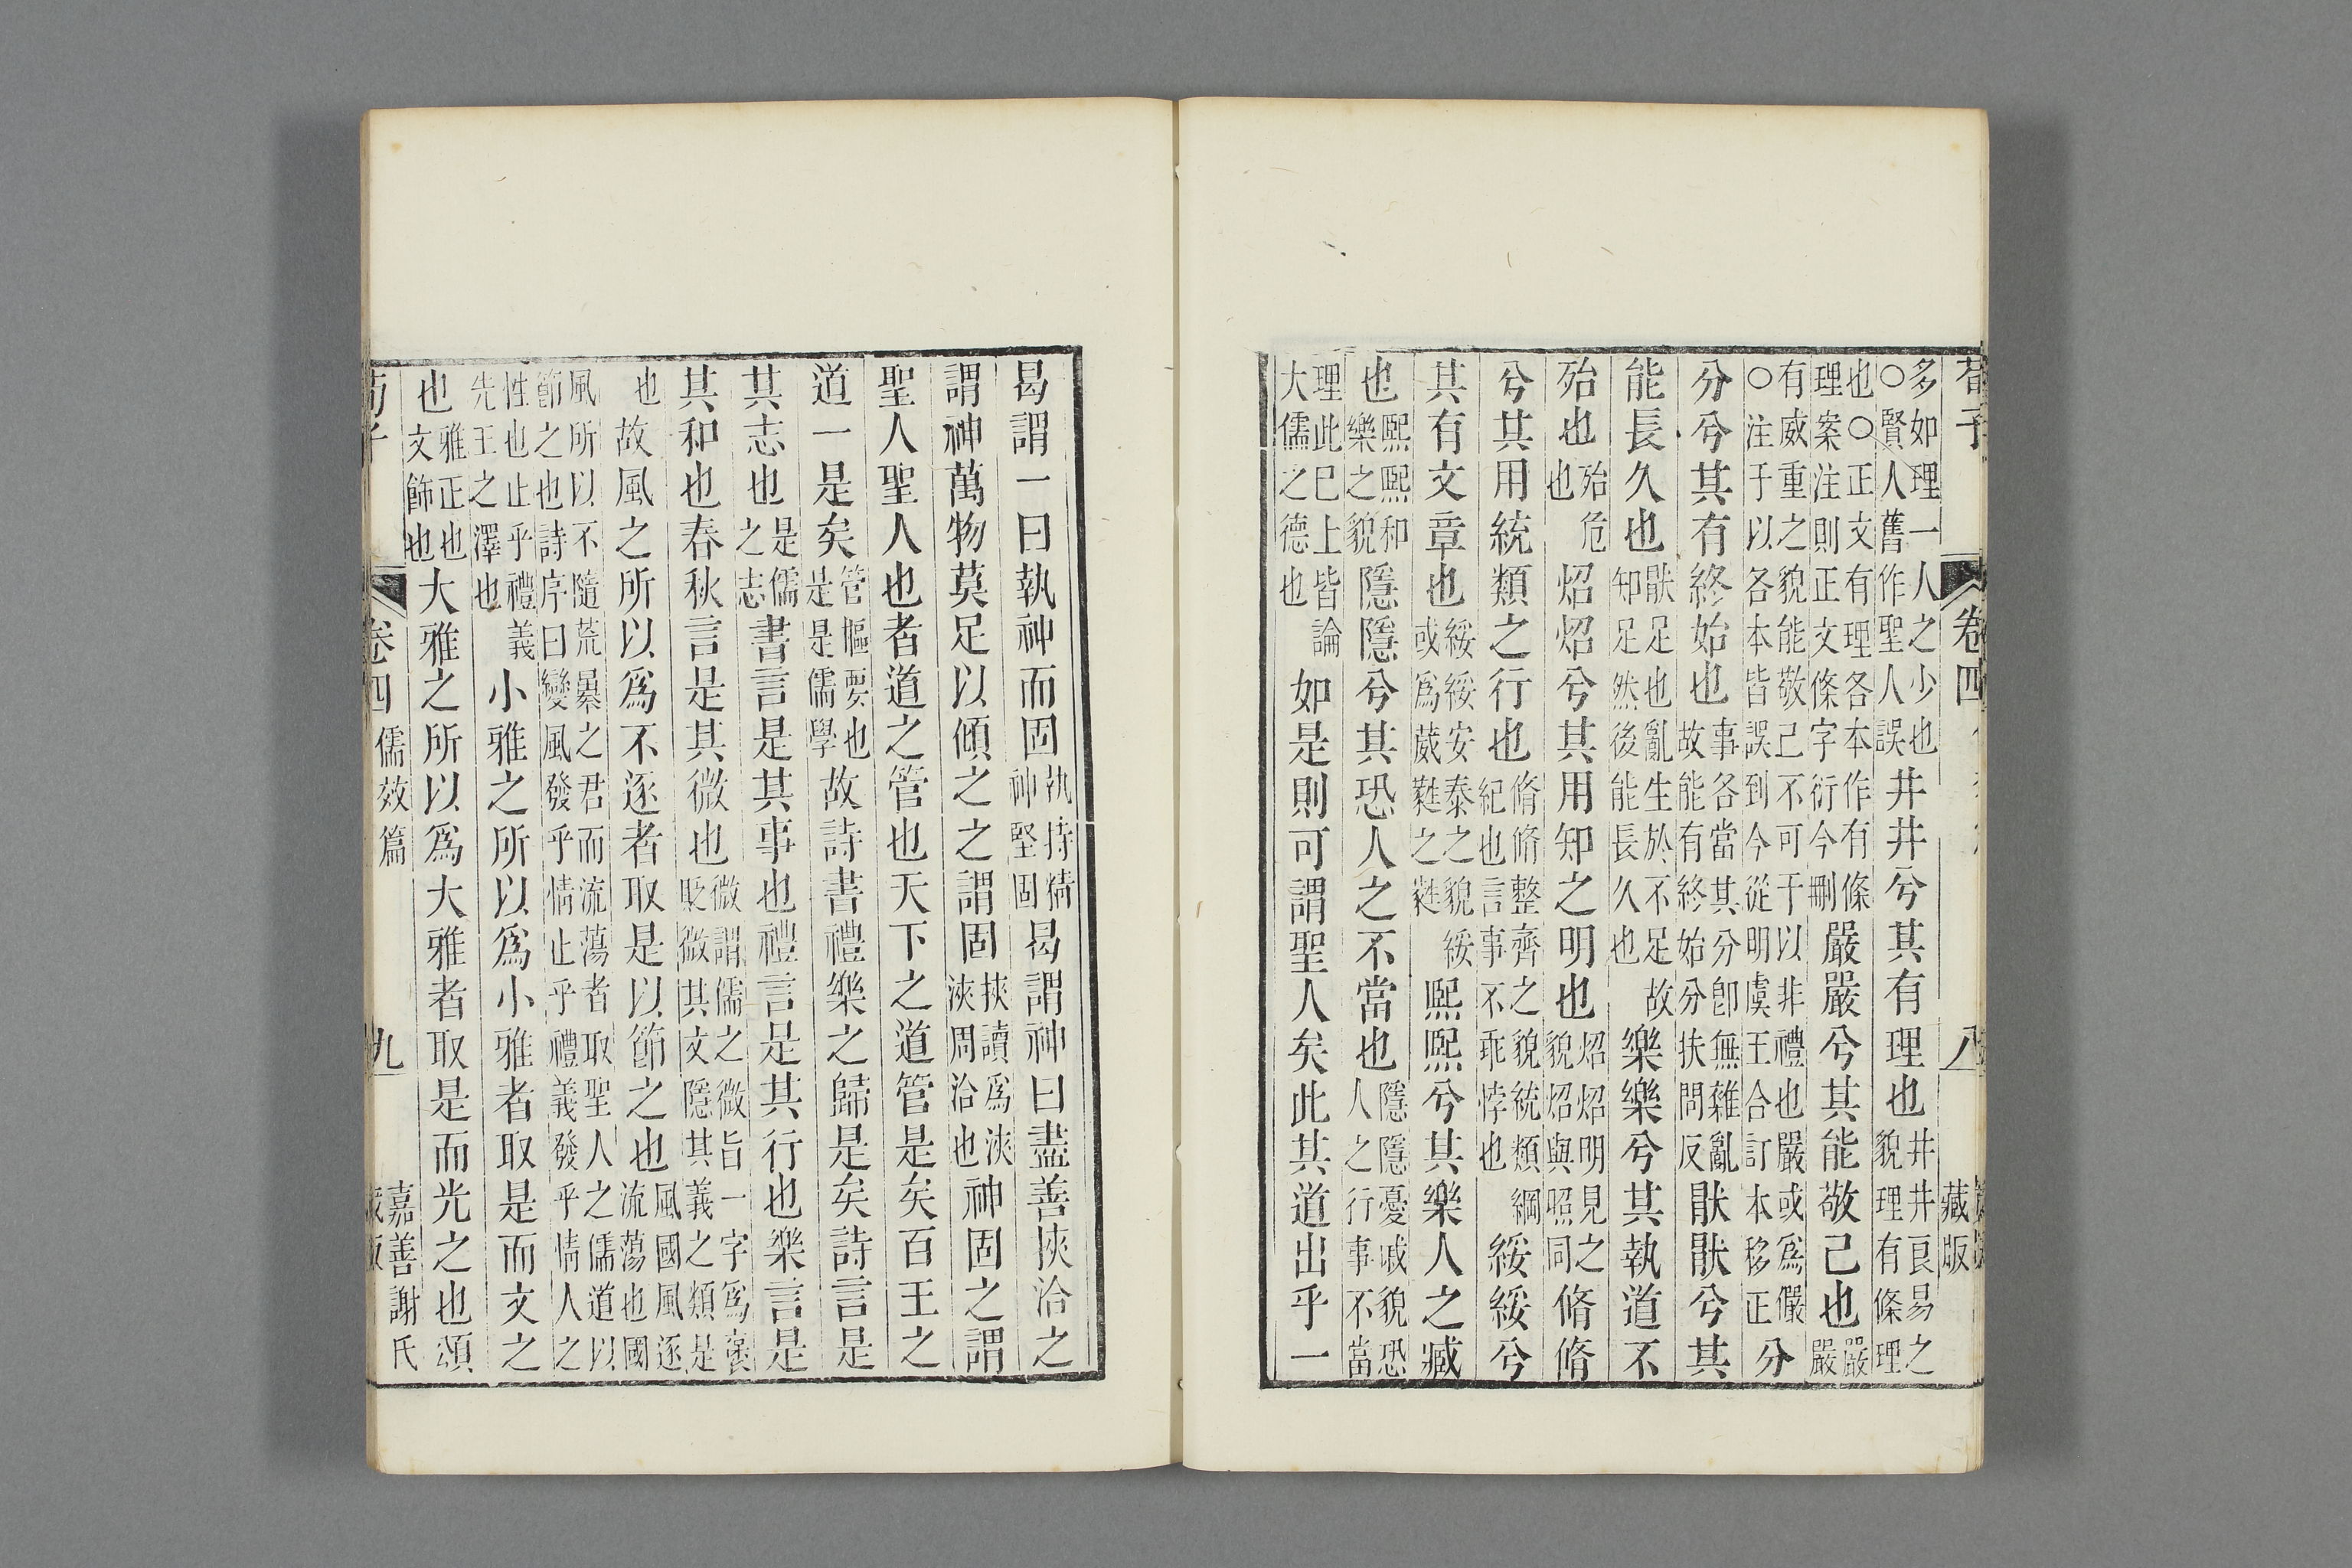 荀子 卷四 八 藏版
多如理一人之少也○賢人舊作聖人誤井井兮其有理也井井良易之貌理有條理
也○正文有理各本作有條理案注則正文條字衍今刪嚴嚴兮其能敬己也嚴嚴
有威重之貌能敬己不可干以非禮也嚴或爲儼○注干以各本皆誤到今從明虞王合訂本移正分
分兮其有終始也事各當其分卽無雜亂故能有終始分扶問反猒猒兮其
能長久也猒足也亂生於不足故知足然後能長久也樂樂兮其執道不
殆也殆危也炤炤兮其用知之明也炤炤明見之貌炤與照同脩脩
兮其用統類之行也脩脩整齊之貌統類綱紀也言事不乖悖也綏綏兮
其有文章也綏綏安泰之貌綏或爲葳蕤之蕤熙熙兮其樂人之臧
也熙熙和樂之貌隱隱兮其恐人之不當也隱隱憂戚貌恐人之行事不當
理此已上皆論大儒之德也如是則可謂聖人矣此其道出乎一
曷謂一曰執神而固執持精神堅固曷謂神曰盡善挾洽之
謂神萬物莫足以傾之之謂固挾讀爲浹浹周洽也神固之謂
聖人聖人也者道之管也天下之道管是矣百王之
道一是矣管樞要也是是儒學故詩書禮樂之歸是矣詩言是
其志也是儒之志書言是其事也禮言是其行也樂言是
其和也春秋言是其微也微謂儒之微旨一字爲襃貶微其文隱其義之類是
也故風之所以爲不逐者取是以節之也風國風逐流蕩也國
風所以不隨荒暴之君而流蕩者取聖人之儒道以節之也詩序曰變風發乎情止乎禮義發乎情人之
性也止乎禮義先王之澤也小雅之所以爲小雅者取是而文之
也雅正也文飾也大雅之所以爲大雅者取是而光之也頌
荀子 卷四 儒效篇 九 嘉善謝氏藏版